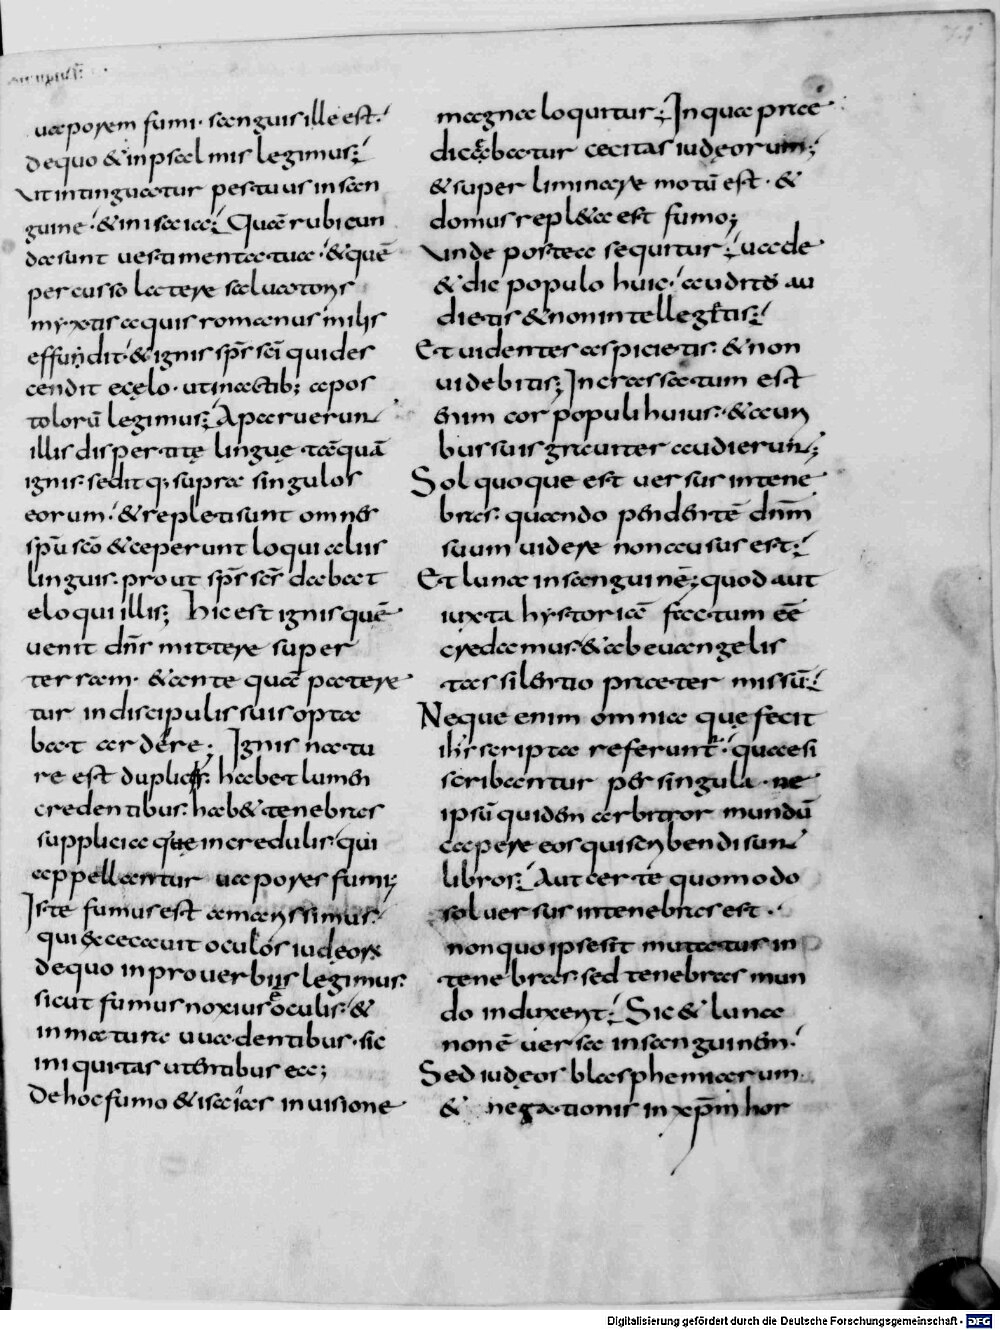 uaporem fumi· sanguis ille est·
dequo & inpsalmis legimus;
Ut intinguatur pes tuus in san
guine·' & in isaia; Quare rubicun
da sunt uestimenta tua·' & quē
percusso latere saluatoris
myxtis aquis romanus milis
effundit·' & ignis sp̄s sc̄i qui des
cendit e cęlo· ut in actib; apos
tolorū legimus; Aparuerun
illis dispertitę linguę tāquā
ignis· sedit q; supra singulos
eorum·' & repleti sunt omnes
sp̄u sc̄o & ceperunt loqui aliis
linguis· prout sp̄s sc̄s dabat
eloqui illis; hic est ignis quē
uenit dn̄s mittere super
terram· & ante quā patere
tur in discipulis suis opta
bat ardere; Ignis natu
re est duplicis· habet lumen
credentibus· hab& tenebras
supplicia que incredulis· qui
appellantur uapores fumi;
Iste fumus est amarissimus·
qui & cecauit oculos iudeorx
dequo in prouerbiis legimus·
sicut fumus noxius oculis· &
inmature uua dentibus· sic
iniquitas utentibus ea;
De hoc fumo & isaias in uisione
magna loquitur; In qua prae
dicabatur cecitas iudęorum;
& super liminare motū est· &
domus repl&a est fumo;
Unde postea sequitur·' uade
& dic populo huic·' auditis au
dietis & non intellegetis;
Et uidentes aspicietis· & non
uidebitis; Incrassatum est
enim cor populi huius· & aurı
bus suis grauiter audierun;
Sol quoque est uersus in tene
bras· quando pendentē dn̄m
suum uidere non ausus est;
Et luna in sanguinē; quod aut
iuxta hystoriā factum eē
credamus· & ab euangelis
tas silentio praetermissū;
Neque enim omnia quę fecit
ih̄s scripta referunt·' quae si
scribantur per singula· ne
ipsū quidem arbitror mundū
capere eos qui scribendi sun
libros; Aut certe quomodo
sol uersus in tenebras est·
non quo ipse sit mutatur in
tenebras· sed tenebras mun
do induxerit; Sic & luna
non ē uersa in sanguinem·
Sed iudęos blasphemiarum
& negationis in xp̄m hor
Digitalisierung gefördert durch die Deutsche Forschungsgemeinschaft - DFG